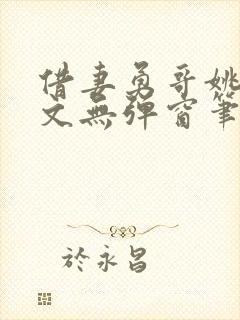 借妻勇哥姚
文無彈窗筆
於永昌